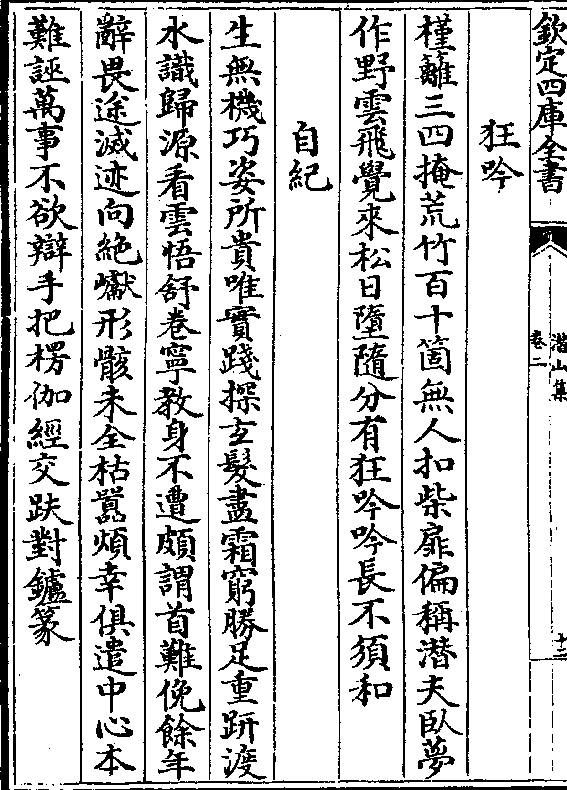 欽定四庫全書
潛山集
卷二
十三
狂吟
槿籬三四掩荒竹百十箇無人扣柴扉偏稱潜夫臥夢
作野雲飛覺來松日墮隨分有狂吟吟長不須和
自紀
生無機巧姿所貴唯實踐探𤣥髮盡霜窮勝足重趼渡
水識歸源看雲悟舒卷寧教身不遭頗謂首難俛餘年
辭畏途滅迹向絶巘形骸未全枯囂煩幸俱遣中心本
難誣萬事不欲辯手把楞伽經交趺對鑪篆